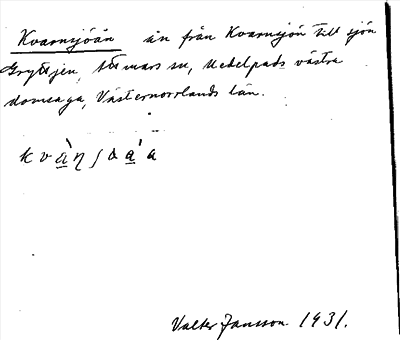 Kvarnsjöån ån från Kvarnsjön till sjön
Grytsjen, Attmars sn, Medelpads västra
domsaga, Västernorrlands län.
Valter Jansson 1931.